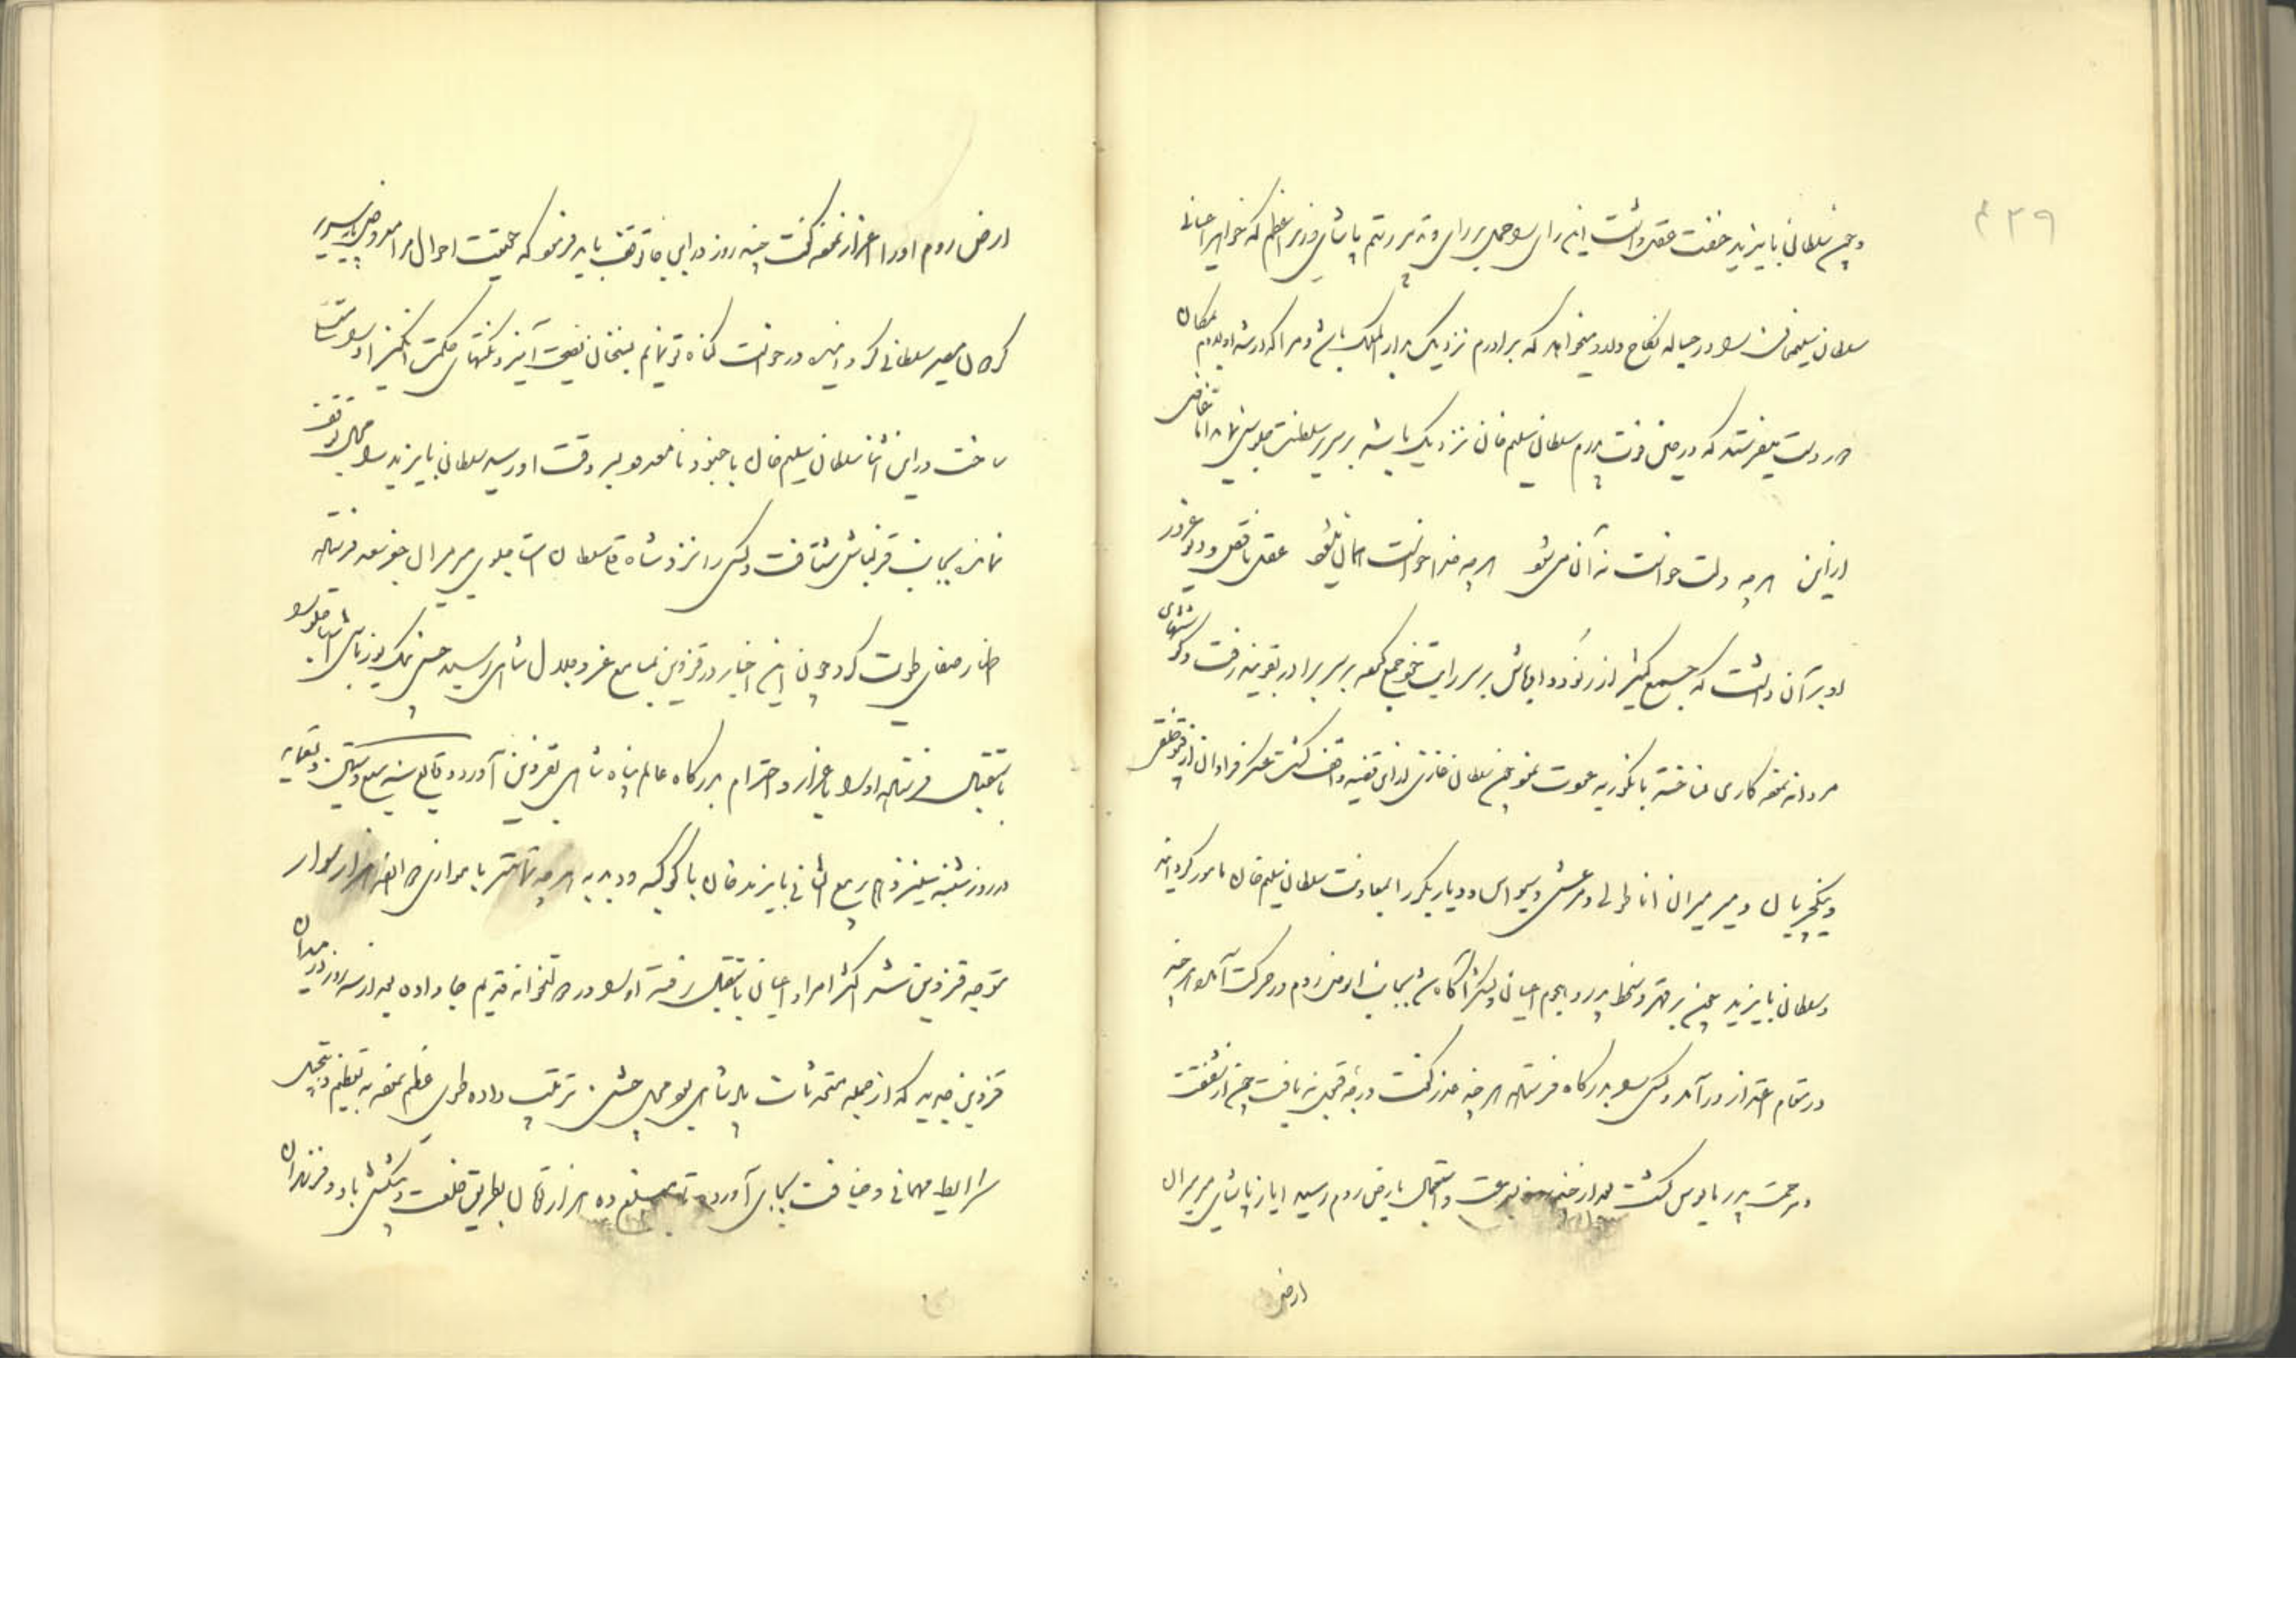 ۳۲۹
و چون سلطان بایزید خفت عقل داشت این رای را حمل بر رای و تدبیر رستم پاشای وزیر اعظم که خواهر اعیانی
سلطان سلیم خان را در حباله نکاح دارد و میخواهد که برادرم نزدیک بدارالملک باشد و مرا که ارشد اولادم بمکان
دور دست میفرستد که در حین فوت پدرم سلطان سلیم خان نزدیک باشد بر سریر سلطنت جلوس نماید اما تقاضی
از این هر چه دلت خواست نه آن می شود هر چه خدا خواست همان میشود عقل ناقص و دیو غرور
او بر آن داشت که جمعی کثیر از رنود و اوباش بر سر رایت خود جمع کرده بر سر برادر بقونیه رفت و کوششهای
مردانه نموده کاری نساخته بانکوریه عودت نمود چون سلطان غازی از این قضیه واقف گشت عسکر فراوان از قپو خلقی
و ینکچریان و میر میران اناطولی و مرعش و سیواس و دیاربکر را بمعاونت سلطان سلیم خان مامور گردانید
و سلطان بایزید چون بر قهر و سخط پدر و هجوم اعیان و لشکر آگاه شد بجانب ارض روم در حرکت آمد و هر چند
در مقام اعتذار در آمد و کس بدرگاه فرستاد هر چند عذر گفت درجه قبول نه یافت چون از شفقت
و مرحمت پدر مایوس گشت بعد از چند روز بسرعت و استعجال بارض روم رسید ایاز پاشای میرمیران
ارض
ارض روم او را اعزاز نموده گفت چند روز در این جا توقف باید فرمود که حقیقت احوال مرا معروض پایه سریر
گردون مصیر سلطانی گردانیده درخواست گناه تو نمایم بسخنان نصیحت آمیز و نکتهای حکمت انگیز او را مستمال
ساخت در این اثنا سلطان سلیم خان با جنود نامعدود بسر وقت او رسید سلطان بایزید را مجال توقف
نمانده بجانب قزلباش شتافت و کس را نزد شاه قلی سلطان استاجلوی میرمیران چخور سعد فرستاده
اظهار صفای طویت کرد چون این اخبار در قزوین بمسامع عز و جلال شاهی رسید حسن بیک یوزباشی استاجلو را
باستقبال فرستاده او را باعزاز و احترام بدرگاه عالم پناه شاهی بقزوین آورد وقایع سنه سبع و ستین و تسعمایه
در روز شنبه سیزدهم ربیع الثانی بایزید خان با کوکبه و دبدبه هر چه تمامتر با موازی ده هزار سوار
متوجه قزوین شد اکثر امرا و اعیان باستقبال رفته او را در دولتخانه قدیم جا داده بعد از سه روز در میدان
قزوین جدید که از جمله محدثات پادشاهی بود مجلس جشن ترتیب داده طوی عظیم نموده به تعظیم و تبجیل
شرایط مهمانی و ضیافت بجای آورده تا مبلغ ده هزار تومان بطریق خلعت و پیشکش باو و فرزندان